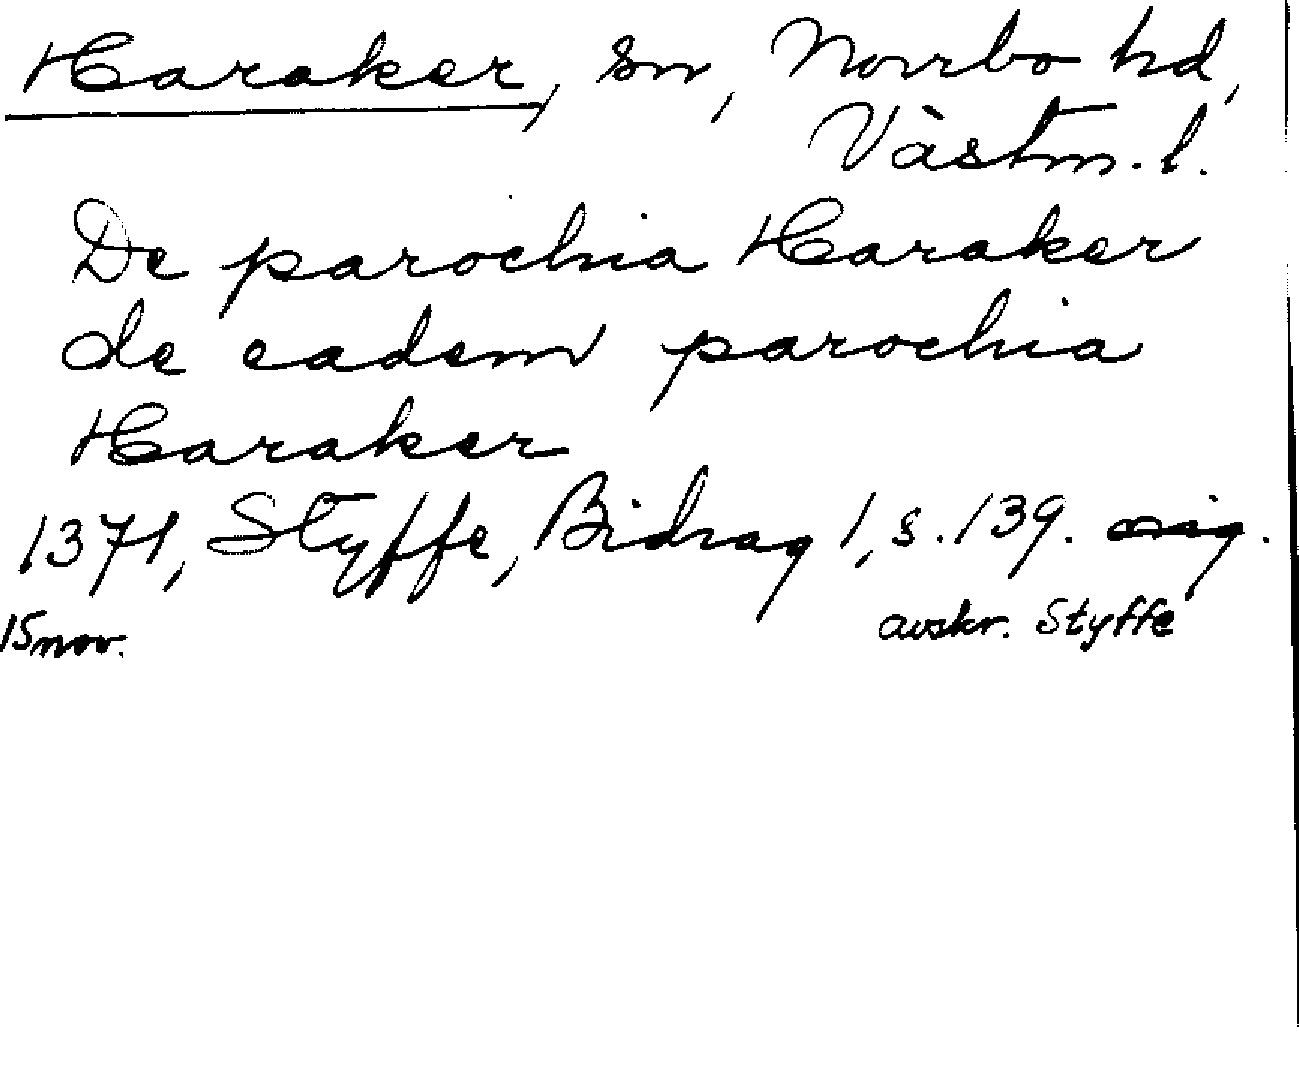 Haraker, sn, Norrbo hd,
Västm. l.
De parochia Haraker
de eadem parochia
Haraker
1371, Styffe, Bidrag 1, s. 139. orig.
15 nov. avskr. Styffe